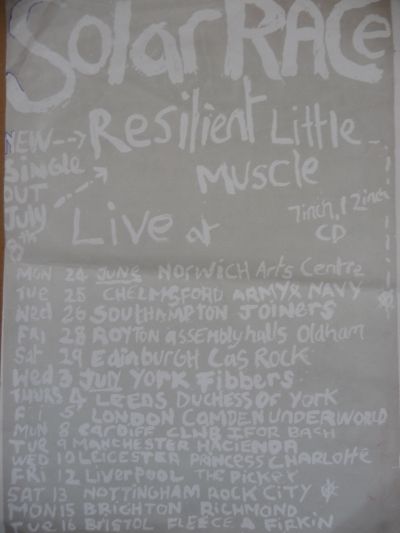 Solar RACe
NEW --> Resilient Little
Single
MUSCle
OUT
July
8th
7inch, 12inch
CD
Live at
MON 24 JUNE NORWICH Arts Centre
TUE 25 CHELMSFORD ARMY & NAVY
Wed 26 SOUTHAMPTON JOINERS
FRI 28 ROYTON assembly halls Oldham
Sat 29 Edinburgh Cas Rock
Wed 3 JULY YORK Fibbers
THURS 4 LEEDS DUCHESS OF YORK
FRI 5 LONDON CAMDEN UNDERWORLD
MUN 8 CARDIFF CLUB IFOR BACH
TUE 9 MANCHESTER HACIENDA
WED 10 LEICESTER PRINCESS CHARLOTTE
FRI 12 LIVERPOOL THE PICKET
SAT 13 NOTTINGHAM ROCK CITY
MON 15 BRIGHTON RICHMOND
TUE 16 BRISTOL FLEECE & FIRKIN